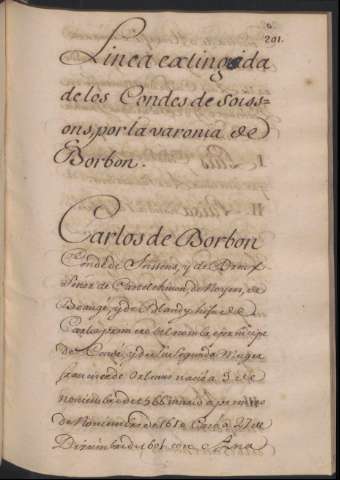 201.
Linea extinguida
de los Condes de Soiss=
ons, por la varonia de
Borbon.
Carlos de Borbon
Conde de Soisons, y de Dreux
Señor de Castelchinon, de Noyers, de
Beaugé, y de Blandy hijo de
Carlos primero del nombre principe
de Condé, y de su segunda Muger
francisca de Orleans nacio a 3 de
noviembre de 1566 murio a primero
de Noviembre de 1612 Casò a 27 de
Diziembre de 1601 con Ana